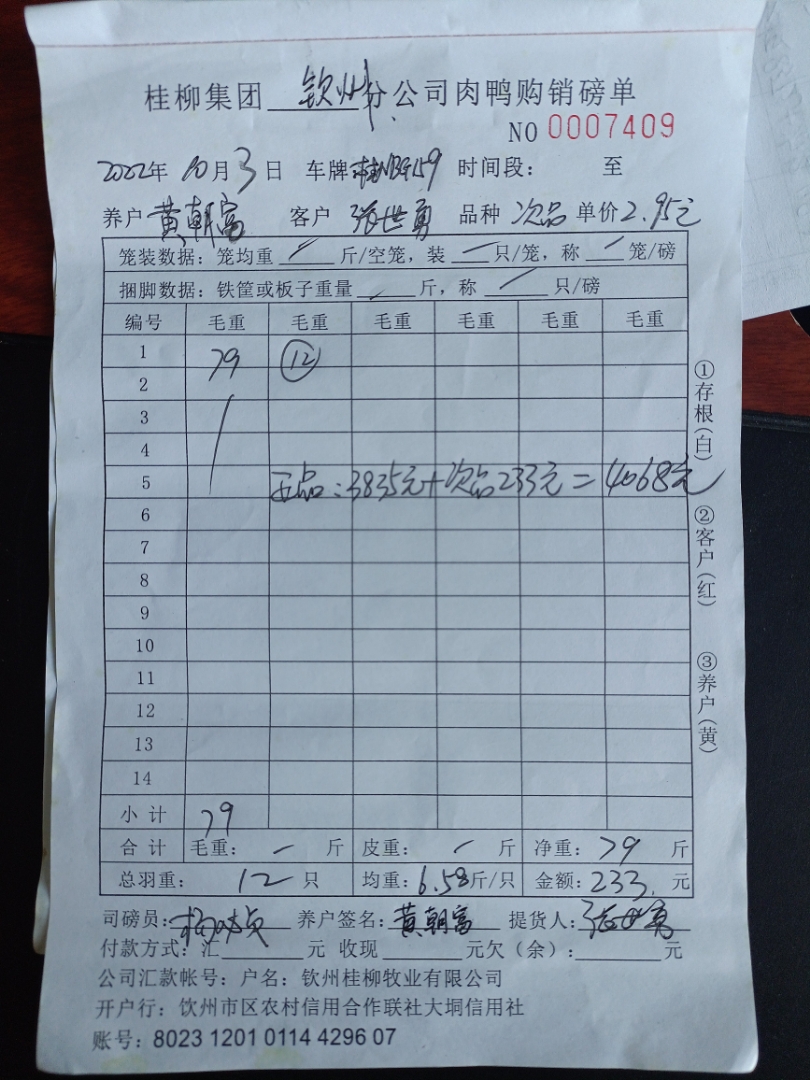 桂柳集团 钦州 分公司肉鸭购销磅单
NO 0007409
2022年 10月3日 车牌 59 时间段: 至
养户 黄朝富 客户 张世勇 品种 次品 单价 2.95元
笼装数据:笼均重 / 斤/空笼,装 一 只/笼,称 / 笼/磅
捆脚数据:铁筐或板子重量 / 斤,称 / 只/磅
编号 毛重 毛重 毛重 毛重 毛重 毛重
1 79 ⑫
2
3
4
5 正品:3835元+次品233元=4068元
6
7
8
9
10
11
12
13
14
小计 79
合计 毛重: / 斤 皮重: / 斤 净重: 79 斤
总羽重: 12 只 均重: 6.58斤/只 金额: 233. 元
司磅员: 养户签名: 黄朝富 提货人: 张世勇
付款方式:汇 元 收现 元欠(余): 元
公司汇款帐号:户名:钦州桂柳牧业有限公司
开户行:钦州市区农村信用合作联社大垌信用社
账号:8023 1201 0114 4296 07
①存根(白)
②客户(红)
③养户(黄)